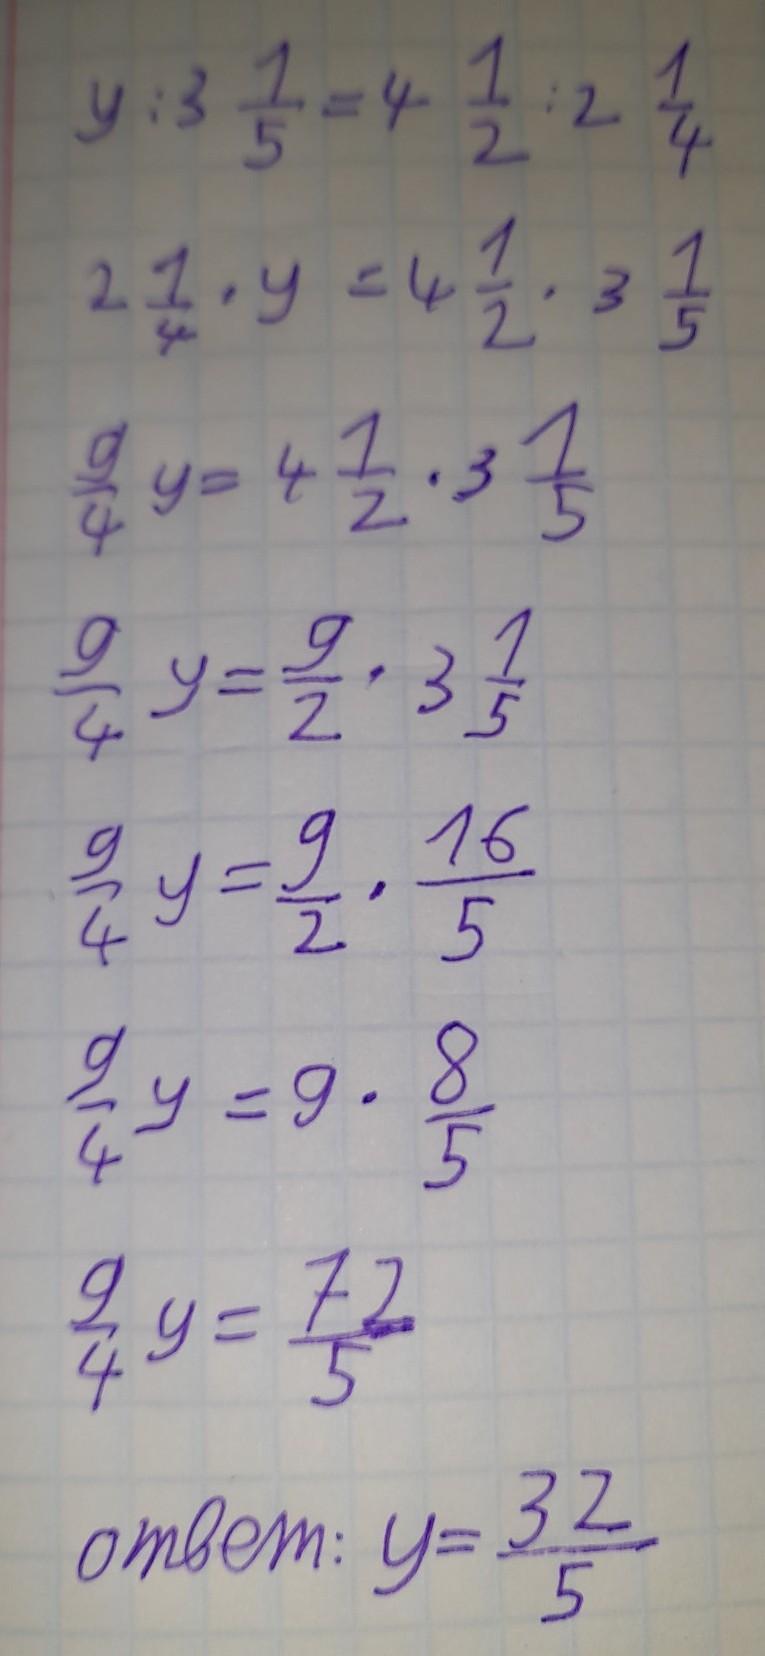 y : 3 1/5 = 4 1/2 : 2 1/4
2 1/4 · y = 4 1/2 · 3 1/5
9/4 y = 4 1/2 · 3 1/5
9/4 y = 9/2 · 3 1/5
9/4 y = 9/2 · 16/5
9/4 y = 9 · 8/5
9/4 y = 72/5
ответ: y = 32/5